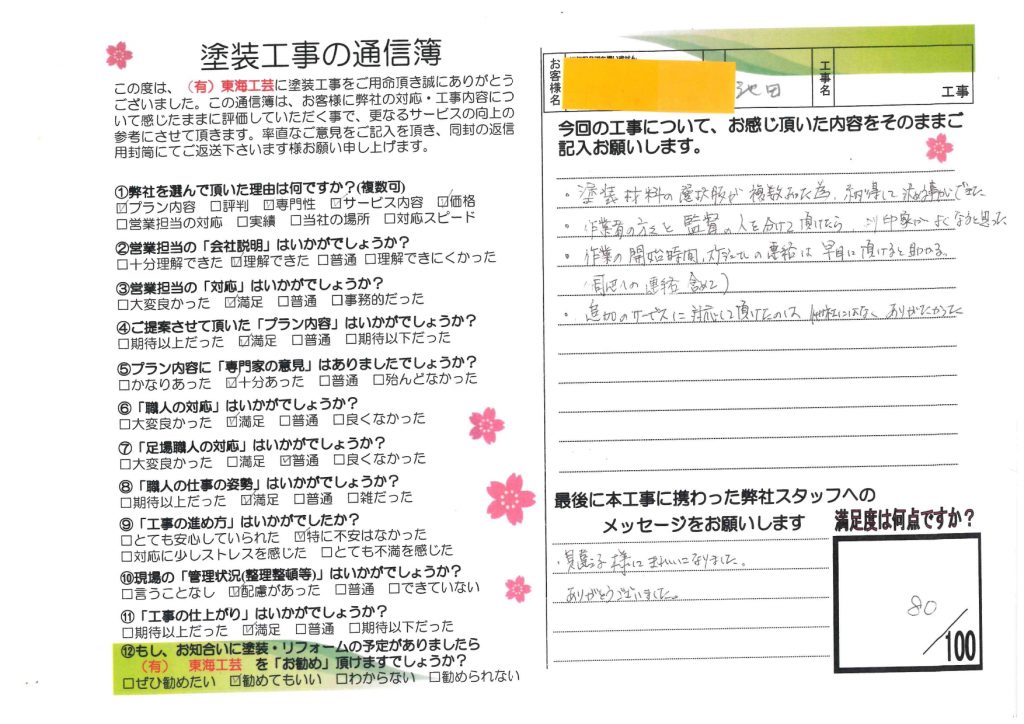 塗装工事の通信簿
この度は、（有）東海工芸に塗装工事をご用命頂き誠にありがとう
ございました。この通信簿は、お客様に弊社の対応・工事内容につ
いて感じたままに評価していただく事で、更なるサービスの向上の
参考にさせて頂きます。率直なご意見をご記入を頂き、同封の返信
用封筒にてご返送下さいます様お願い申し上げます。
①弊社を選んで頂いた理由は何ですか？(複数可)
☑プラン内容 □評判 ☑専門性 ☑サービス内容 ☑価格
□営業担当の対応 □実績 □当社の場所 □対応スピード
②営業担当の「会社説明」はいかがでしょうか？
□十分理解できた ☑理解できた □普通 □理解できにくかった
③営業担当の「対応」はいかがでしょうか？
□大変良かった ☑満足 □普通 □事務的だった
④ご提案させて頂いた「プラン内容」はいかがでしょうか？
□期待以上だった ☑満足 □普通 □期待以下だった
⑤プラン内容に「専門家の意見」はありましたでしょうか？
□かなりあった ☑十分あった □普通 □殆んどなかった
⑥「職人の対応」はいかがでしょうか？
□大変良かった ☑満足 □普通 □良くなかった
⑦「足場職人の対応」はいかがでしょうか？
□大変良かった □満足 ☑普通 □良くなかった
⑧「職人の仕事の姿勢」はいかがでしょうか？
□期待以上だった ☑満足 □普通 □雑だった
⑨「工事の進め方」はいかがでしたか？
□とても安心していられた ☑特に不安はなかった
□対応に少しストレスを感じた □とても不満を感じた
⑩現場の「管理状況(整理整頓等)」はいかがでしょうか？
□言うことなし ☑配慮があった □普通 □できていない
⑪「工事の仕上がり」はいかがでしょうか？
□期待以上だった ☑満足 □普通 □期待以下だった
⑫もし、お知合いに塗装・リフォームの予定がありましたら
（有） 東海工芸 を「お勧め」頂けますでしょうか？
□ぜひ勧めたい ☑勧めてもいい □わからない □勧められない
お客様名 池田 工事名 工事
今回の工事について、お感じ頂いた内容をそのままご
記入お願いします。
・塗装材料の選択肢が複数あった為、納得して決める事ができた
・作業者の方々と監督の人を分けて頂けたら、より印象がよくなると思った
・作業の開始時間、スケジュールの連絡は早目に頂けると助かる。
の連絡含めて)
・追加のサービスに対応して頂けたのは、 ありがたかった
最後に本工事に携わった弊社スタッフへの
メッセージをお願いします
満足度は何点ですか？
様にきれいになりました。
ありがとうございました。
80/100